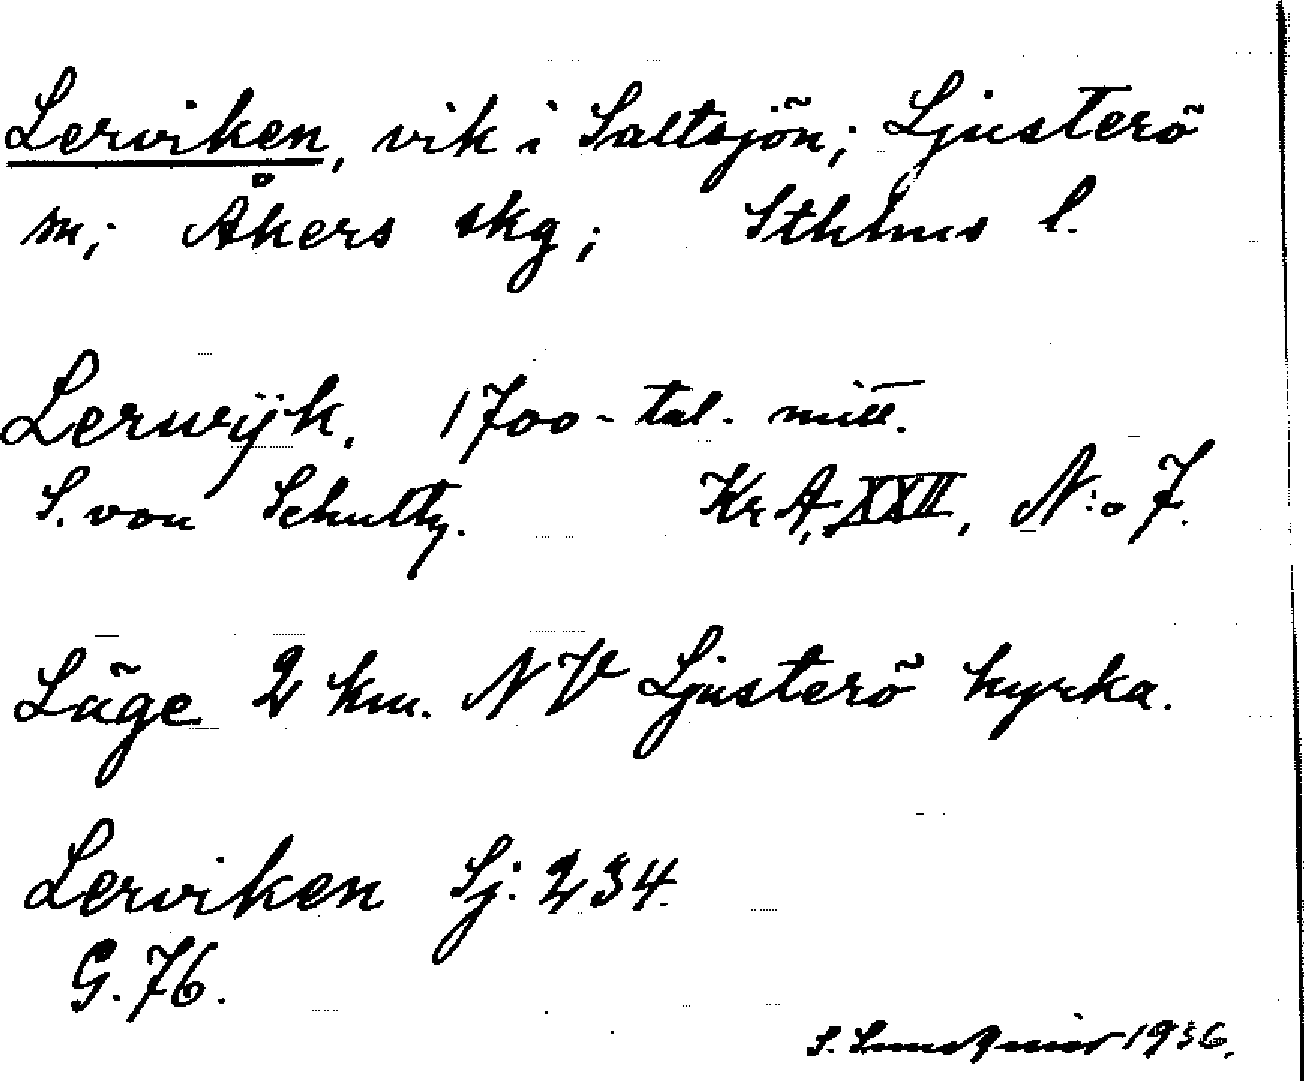 Lerviken, vik i Saltsjön; Ljusterö
sn; Åkers skg; Sthlms l.
Lerwijk. 1700-tal. mitt.
S. von Schultz. Kr.A. XXII, N:o 7.
Läge 2 km. NV Ljusterö kyrka.
Lerviken Sj. 234.
G. 76.
S. 1936.